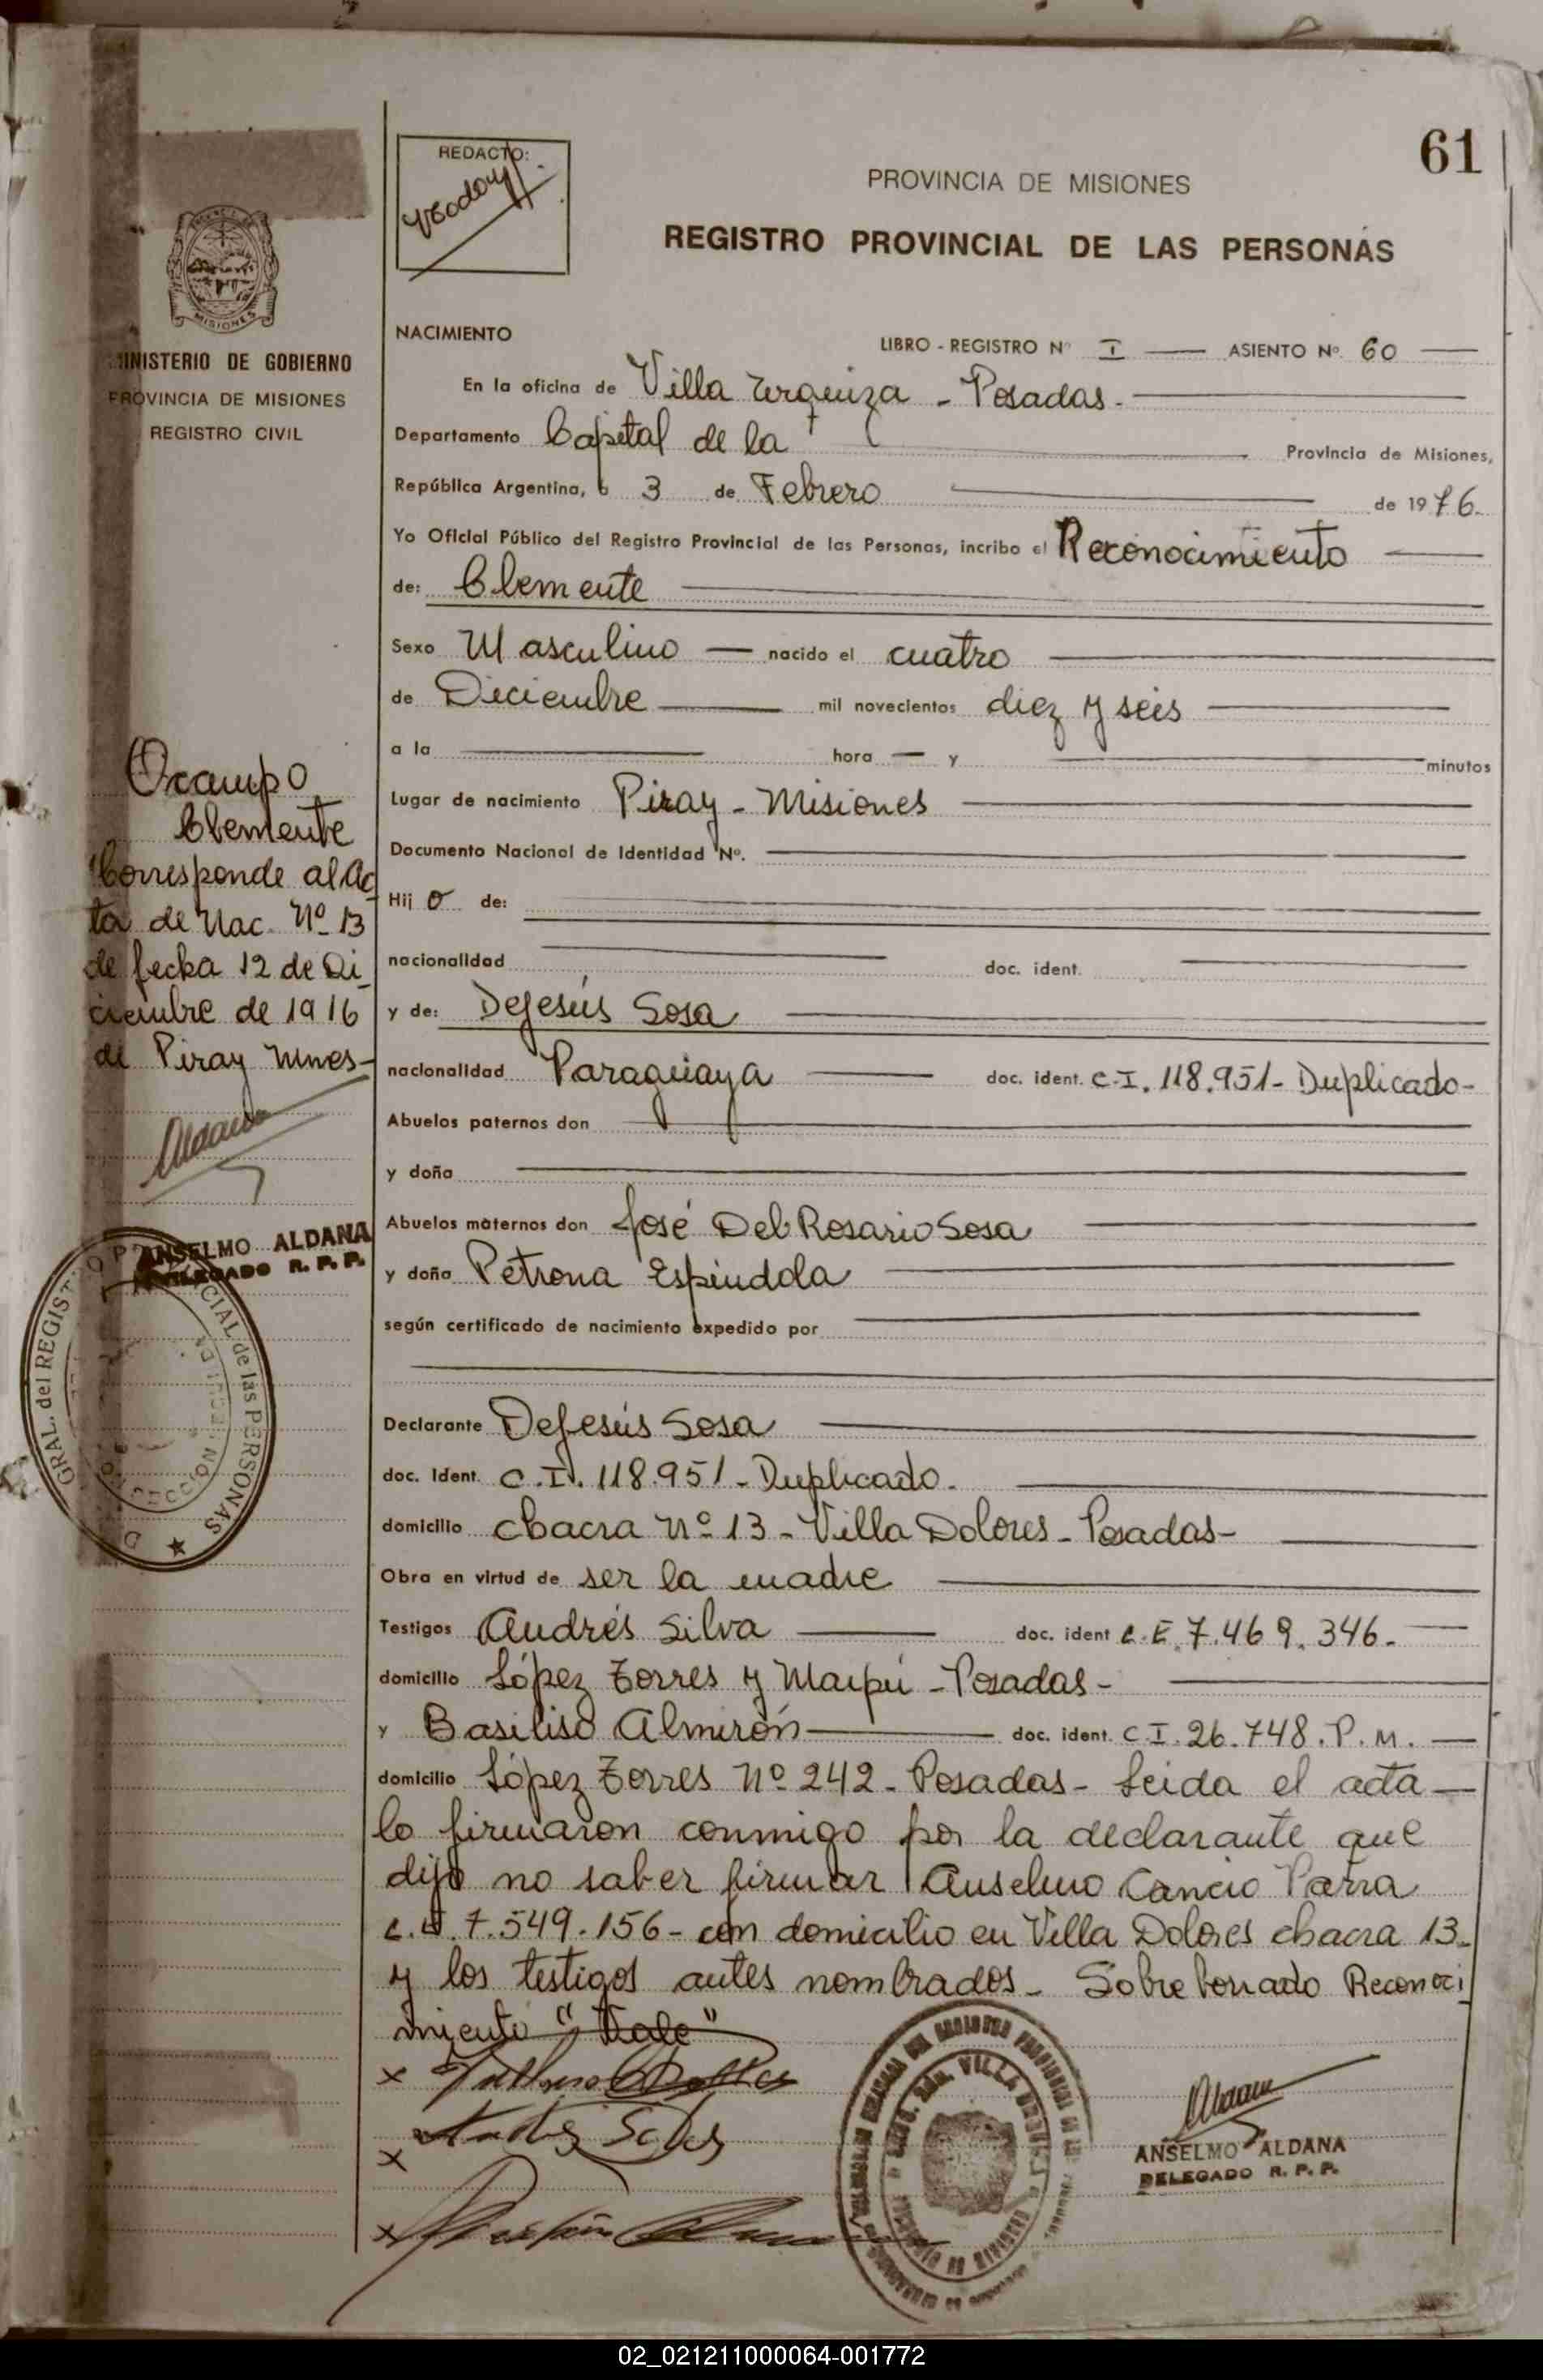 61
REDACTO:
PROVINCIA DE MISIONES
REGISTRO PROVINCIAL DE LAS PERSONAS
MISIONES
MINISTERIO DE GOBIERNO
PROVINCIA DE MISIONES
REGISTRO CIVIL
NACIMIENTO
LIBRO - REGISTRO Nº I — ASIENTO Nº 60 —
En la oficina de Villa Urquiza - Posadas.
Departamento Capital de la Provincia de Misiones,
República Argentina, a 3 de Febrero de 1976.
Yo Oficial Público del Registro Provincial de las Personas, incribo el Reconocimiento
de: Clemente
Sexo Masculino — nacido el cuatro
de Diciembre mil novecientos diez y seis
a la hora — y minutos
Lugar de nacimiento Piray - Misiones
Documento Nacional de Identidad Nº.
Hij o de:
nacionalidad doc. ident.
y de: DeJesús Sosa
nacionalidad Paraguaya doc. ident. C.I. 118.951 - Duplicado -
Abuelos paternos don
y doña
Abuelos maternos don José Del Rosario Sosa
y doña Petrona Espíndola
según certificado de nacimiento expedido por
Declarante DeJesús Sosa
doc. Ident. C.I. 118.951 - Duplicado.
domicilio chacra Nº 13 - Villa Dolores - Posadas -
Obra en virtud de ser la madre
Testigos Andrés Silva doc. ident L.E. 7.469.346.
domicilio López Torres y Maipú - Posadas -
y Basiliso Almirón doc. ident. C.I. 26.748. P.M.
domicilio López Torres Nº 242 - Posadas - Leida el acta
lo firmaron conmigo por la declarante que
dijo no saber firmar Anselmo Cancio Parra
7.549.156 - con domicilio en Villa Dolores chacra 13.
y los testigos antes nombrados - Sobre borrado Reconoci
miento "Vale"
ANSELMO ALDANA
DELEGADO R. P. P.
Ocampo
Clemente
Corresponde al Ac
ta de Nac. Nº 13
de fecha 12 de Di
ciembre de 1916
de Piray Mnes -
ANSELMO ALDANA
DELEGADO R. P. P.
GRAL. del REGISTRO PROVINCIAL de las PERSONAS
02_021211000064-001772